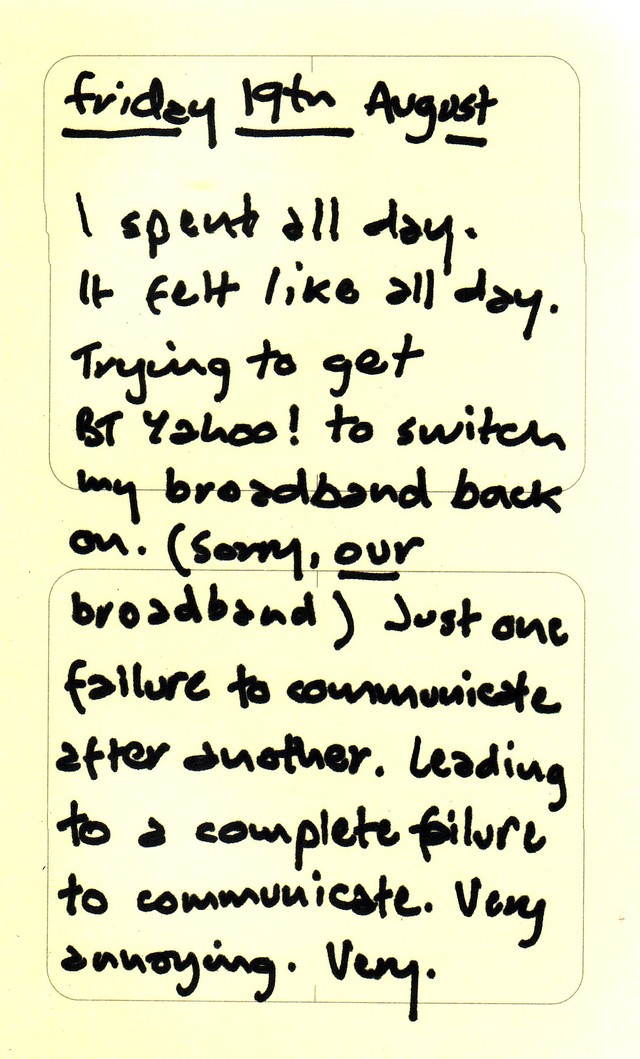 friday 19th August
I spent all day.
It felt like all day.
Trying to get
BT Yahoo! to switch
my broadband back
on. (sorry, our
broadband) Just one
failure to communicate
after another. Leading
to a complete failure
to communicate. Very
annoying. Very.